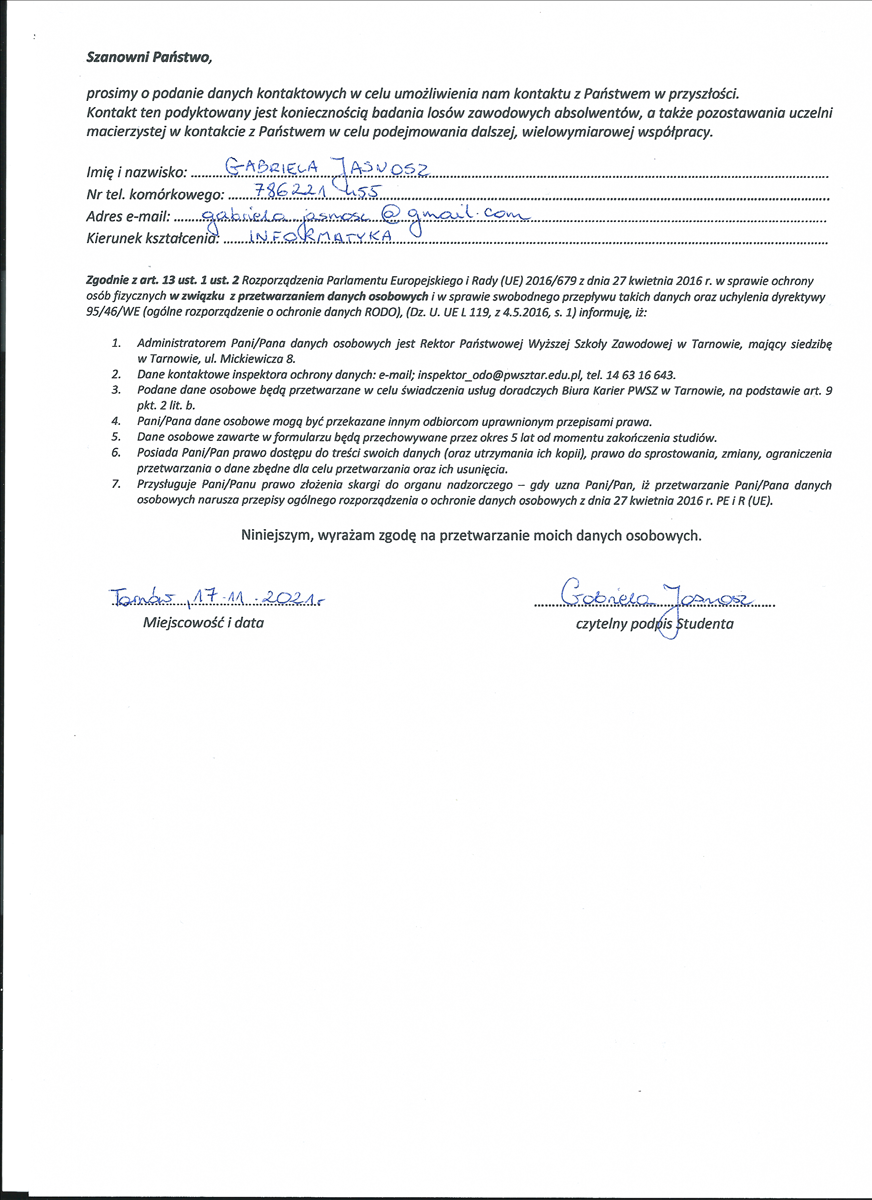 Szanowni Państwo,
prosimy o podanie danych kontaktowych w celu umożliwienia nam kontaktu z Państwem w przyszłości.
Kontakt ten podyktowany jest koniecznością badania losów zawodowych absolwentów, a także pozostawania uczelni
macierzystej w kontakcie z Państwem w celu podejmowania dalszej, wielowymiarowej współpracy.
Imię i nazwisko: GABRIELA JASNOSZ
Nr tel. komórkowego: 786221 455
Adres e-mail: gabriela.jasnosz@gmail.com
Kierunek kształcenia: INFORMATYKA
Zgodnie z art. 13 ust. 1 ust. 2 Rozporządzenia Parlamentu Europejskiego i Rady (UE) 2016/679 z dnia 27 kwietnia 2016 r. w sprawie ochrony
osób fizycznych w związku z przetwarzaniem danych osobowych i w sprawie swobodnego przepływu takich danych oraz uchylenia dyrektywy
95/46/WE (ogólne rozporządzenie o ochronie danych RODO), (Dz. U. UE L 119, z 4.5.2016, s. 1) informuję, iż:
1. Administratorem Pani/Pana danych osobowych jest Rektor Państwowej Wyższej Szkoły Zawodowej w Tarnowie, mający siedzibę
w Tarnowie, ul. Mickiewicza 8.
2. Dane kontaktowe inspektora ochrony danych: e-mail; inspektor_odo@pwsztar.edu.pl, tel. 14 63 16 643.
3. Podane dane osobowe będą przetwarzane w celu świadczenia usług doradczych Biura Karier PWSZ w Tarnowie, na podstawie art. 9
pkt. 2 lit. b.
4. Pani/Pana dane osobowe mogą być przekazane innym odbiorcom uprawnionym przepisami prawa.
5. Dane osobowe zawarte w formularzu będą przechowywane przez okres 5 lat od momentu zakończenia studiów.
6. Posiada Pani/Pan prawo dostępu do treści swoich danych (oraz utrzymania ich kopii), prawo do sprostowania, zmiany, ograniczenia
przetwarzania o dane zbędne dla celu przetwarzania oraz ich usunięcia.
7. Przysługuje Pani/Panu prawo złożenia skargi do organu nadzorczego – gdy uzna Pani/Pan, iż przetwarzanie Pani/Pana danych
osobowych narusza przepisy ogólnego rozporządzenia o ochronie danych osobowych z dnia 27 kwietnia 2016 r. PE i R (UE).
Niniejszym, wyrażam zgodę na przetwarzanie moich danych osobowych.
Tarnów, 17.11.2021r Gabriela Jasnosz
Miejscowość i data czytelny podpis Studenta